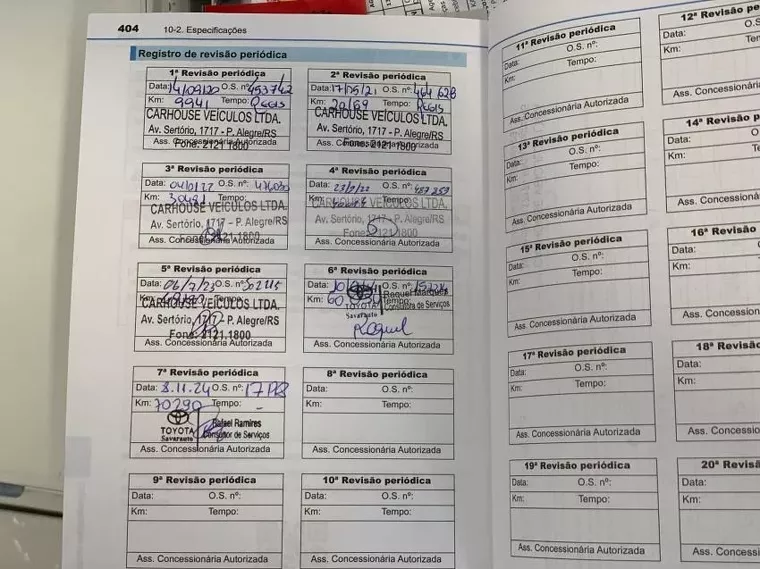 404 10-2. Especificações
Registro de revisão periódica
1ª Revisão periódica
Data: 14/09/20 O.S. nº: 453742
Km: 9941 Tempo: Regis
CARHOUSE VEÍCULOS LTDA.
Av. Sertório, 1717 - P. Alegre/RS
Fone: 2121.1800
Ass. Concessionária Autorizada
2ª Revisão periódica
Data: O.S. nº: 464 628
Km: Tempo: Regis
CARHOUSE VEÍCULOS LTDA.
Av. Sertório, 1717 - P. Alegre/RS
Fone: 2121.1800
Ass. Concessionária Autorizada
3ª Revisão periódica
Data: O.S. nº:
Km: Tempo:
CARHOUSE VEÍCULOS LTDA.
Av. Sertório, 1717 - P. Alegre/RS
Ass. Concessionária Autorizada
4ª Revisão periódica
Data: O.S. nº:
Km: Tempo:
CARHOUSE VEÍCULOS LTDA.
Av. Sertório, 1717 - P. Alegre/RS
Fone: 2121.1800
Ass. Concessionária Autorizada
5ª Revisão periódica
Data: 06/7/23 O.S. nº:
Km:
CARHOUSE VEÍCULOS LTDA.
Av. Sertório, 1717 - P. Alegre/RS
Fone: 2121.1800
Ass. Concessionária Autorizada
6ª Revisão periódica
Data: O.S. nº:
Km: Tempo:
Raquel Marques
TOYOTA Consultora de Serviços
Savarauto
Raquel
Ass. Concessionária Autorizada
7ª Revisão periódica
Data: 8.11.24 O.S. nº:
Km: 70290 Tempo: -
Rafael Ramires
TOYOTA Consultor de Serviços
Savarauto
Ass. Concessionária Autorizada
8ª Revisão periódica
Data: O.S. nº:
Km: Tempo:
Ass. Concessionária Autorizada
9ª Revisão periódica
Data: O.S. nº:
Km: Tempo:
Ass. Concessionária Autorizada
10ª Revisão periódica
Data: O.S. nº:
Km: Tempo:
Ass. Concessionária Autorizada
11ª Revisão periódica
Data: O.S. nº:
Km: Tempo:
Ass. Concessionária Autorizada
12ª Revisão p
Data:
Km:
Ass. Concessionár
13ª Revisão periódica
Data: O.S. nº:
Km: Tempo:
Ass. Concessionária Autorizada
14ª Revisão p
Data:
Km:
Ass. Concessioná
15ª Revisão periódica
Data: O.S. nº:
Km: Tempo:
Ass. Concessionária Autorizada
16ª Revisão
Data:
Km:
Ass. Concession
17ª Revisão periódica
Data: O.S. nº:
Km: Tempo:
Ass. Concessionária Autorizada
18ª Revisão
Data:
Km:
Ass. Concession
19ª Revisão periódica
Data: O.S. nº:
Km: Tempo:
Ass. Concessionária Autorizada
20ª Revis
Data:
Km:
Ass. Conces